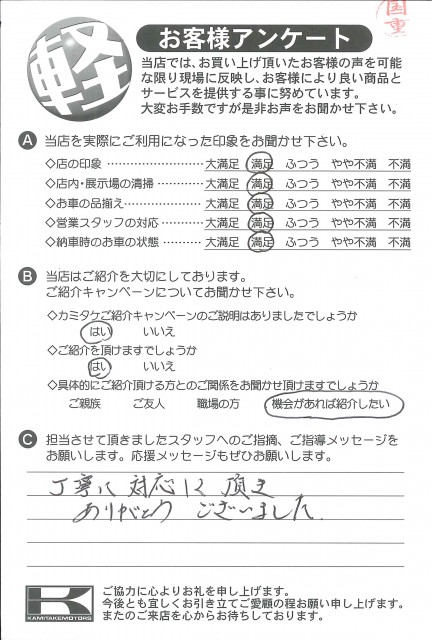 国重
軽
お客様アンケート
当店では、お買い上げ頂いたお客様の声を可能
な限り現場に反映し、お客様により良い商品と
サービスを提供する事に努めています。
大変お手数ですが是非お声をお聞かせ下さい。
A 当店を実際にご利用になった印象をお聞かせ下さい。
◇店の印象 ……………………… 大満足 満足 ふつう やや不満 不満
◇店内・展示場の清掃 ………… 大満足 満足 ふつう やや不満 不満
◇お車の品揃え………………… 大満足 満足 ふつう やや不満 不満
◇営業スタッフの対応 ………… 大満足 満足 ふつう やや不満 不満
◇納車時のお車の状態 ………… 大満足 満足 ふつう やや不満 不満
B 当店はご紹介を大切にしております。
ご紹介キャンペーンについてお聞かせ下さい。
◇カミタケご紹介キャンペーンのご説明はありましたでしょうか
はい いいえ
◇ご紹介を頂けますでしょうか
はい いいえ
◇具体的にご紹介頂ける方とのご関係をお聞かせ頂けますでしょうか
ご親族 ご友人 職場の方 機会があれば紹介したい
C 担当させて頂きましたスタッフへのご指摘、ご指導メッセージを
お願いします。応援メッセージもぜひお願いします。
丁寧に対応して頂き
ありがとうございました。
K
KAMITAKEMOTORS
ご協力に心よりお礼を申し上げます。
今後とも宜しくお引き立てご愛顧の程お願い申し上げます。
またのご来店を心からお待ちしております。